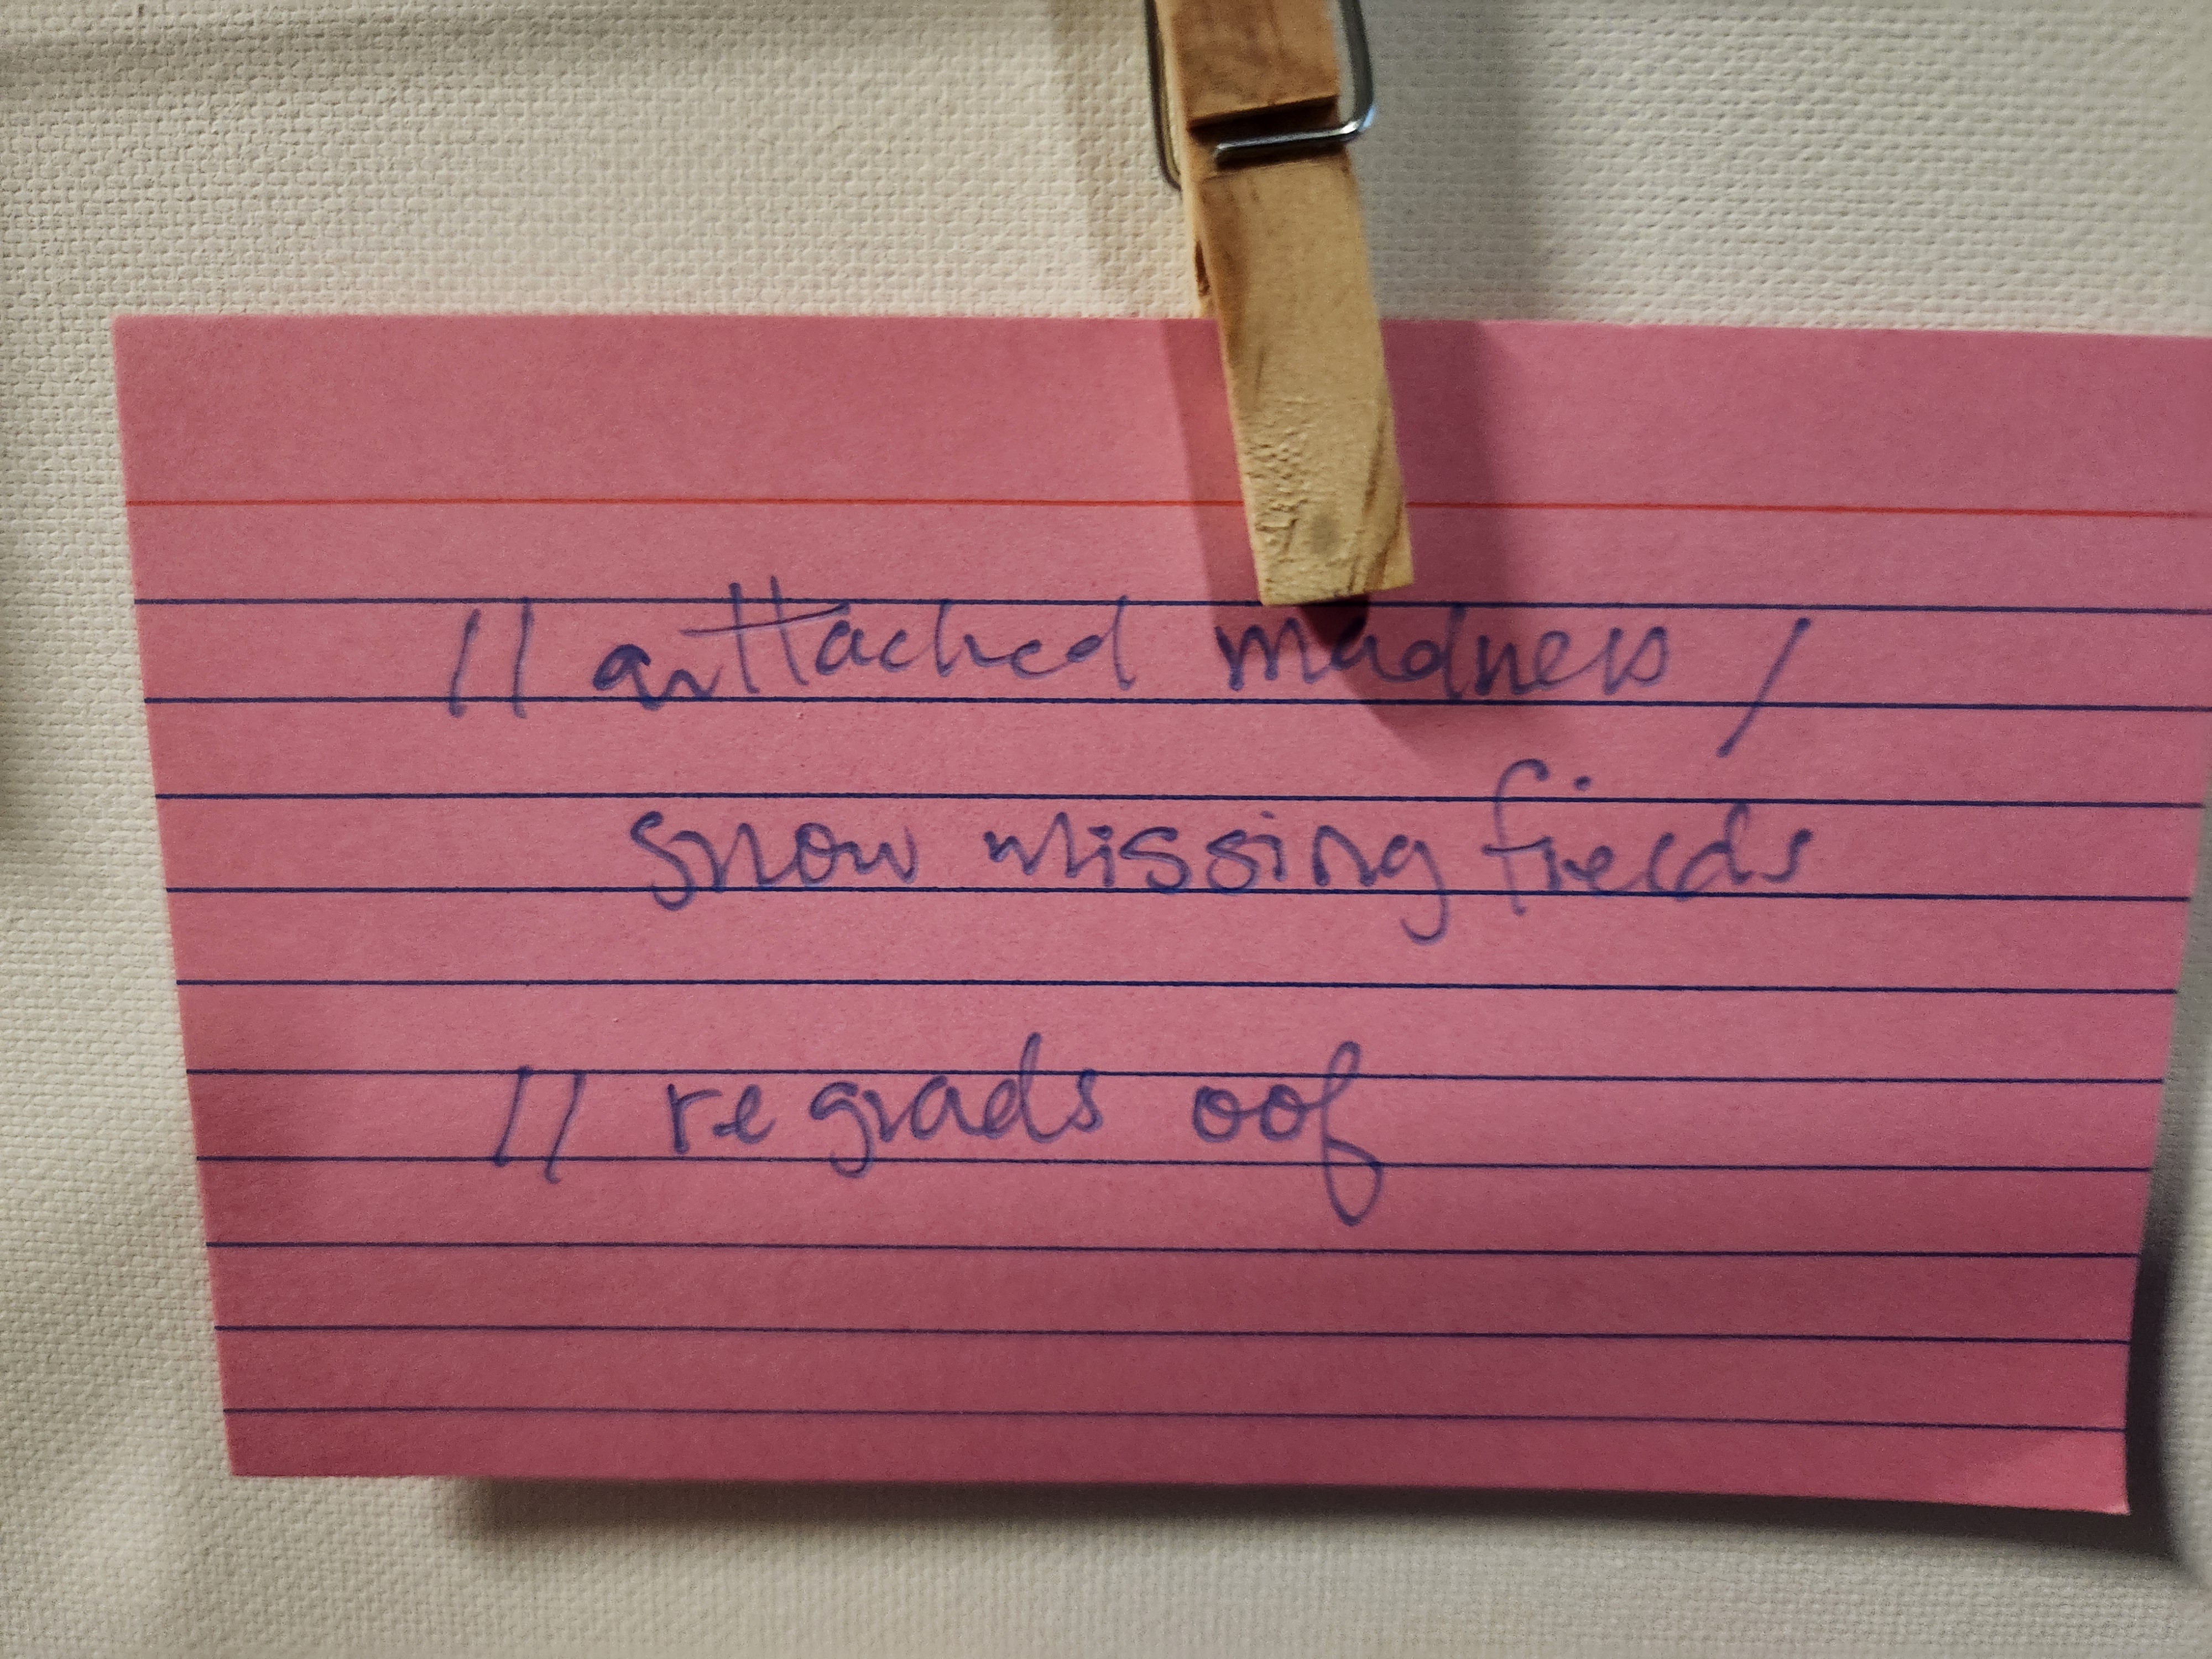 // anttached madness /
snow missing fields
// regrads oof